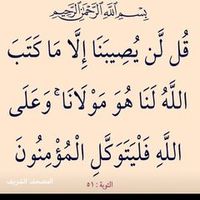 بِسْمِ اللَّهِ الرَّحْمَٰنِ الرَّحِيمِ
قُل لَّن يُصِيبَنَا إِلَّا مَا كَتَبَ
اللَّهُ لَنَا هُوَ مَوْلَانَا ۚ وَعَلَى
اللَّهِ فَلْيَتَوَكَّلِ الْمُؤْمِنُونَ
التوبة : ٥١
المصحف الشريف